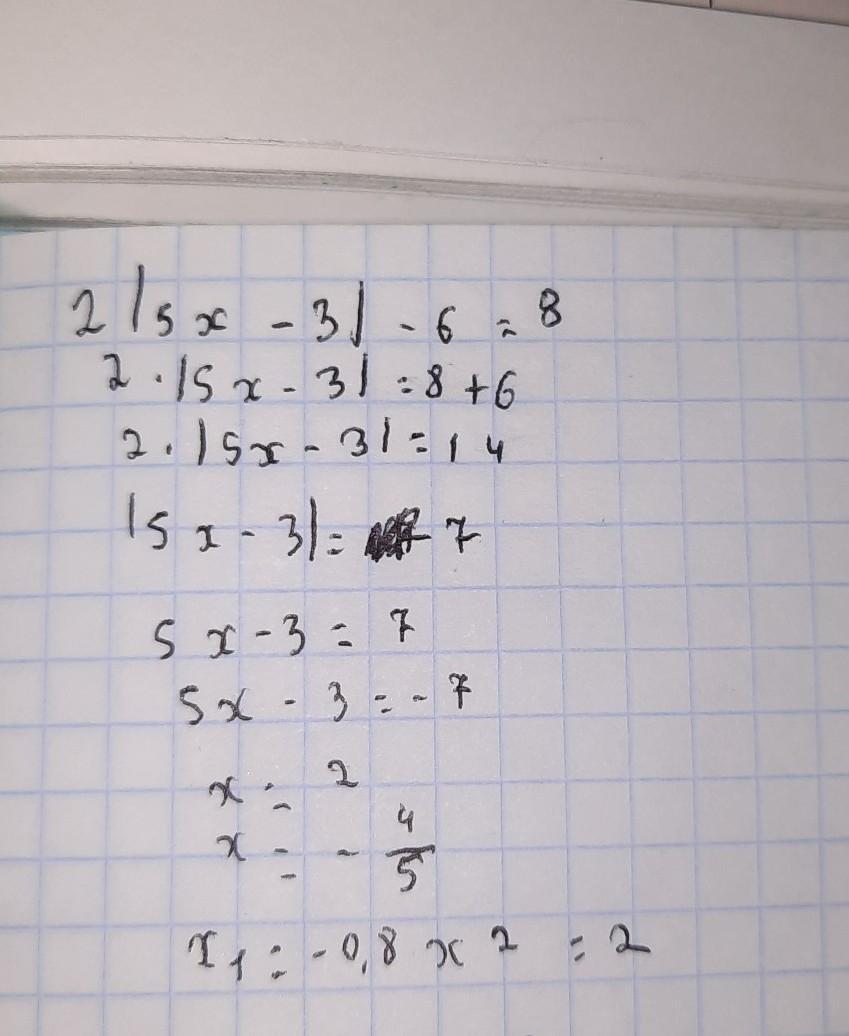 2|5x - 3| - 6 = 8
2 · |5x - 3| = 8 + 6
2 · |5x - 3| = 14
|5x - 3| = 7
5x - 3 = 7
5x - 3 = - 7
x = 2
x = - 4/5
x1 = -0,8 x2 = 2